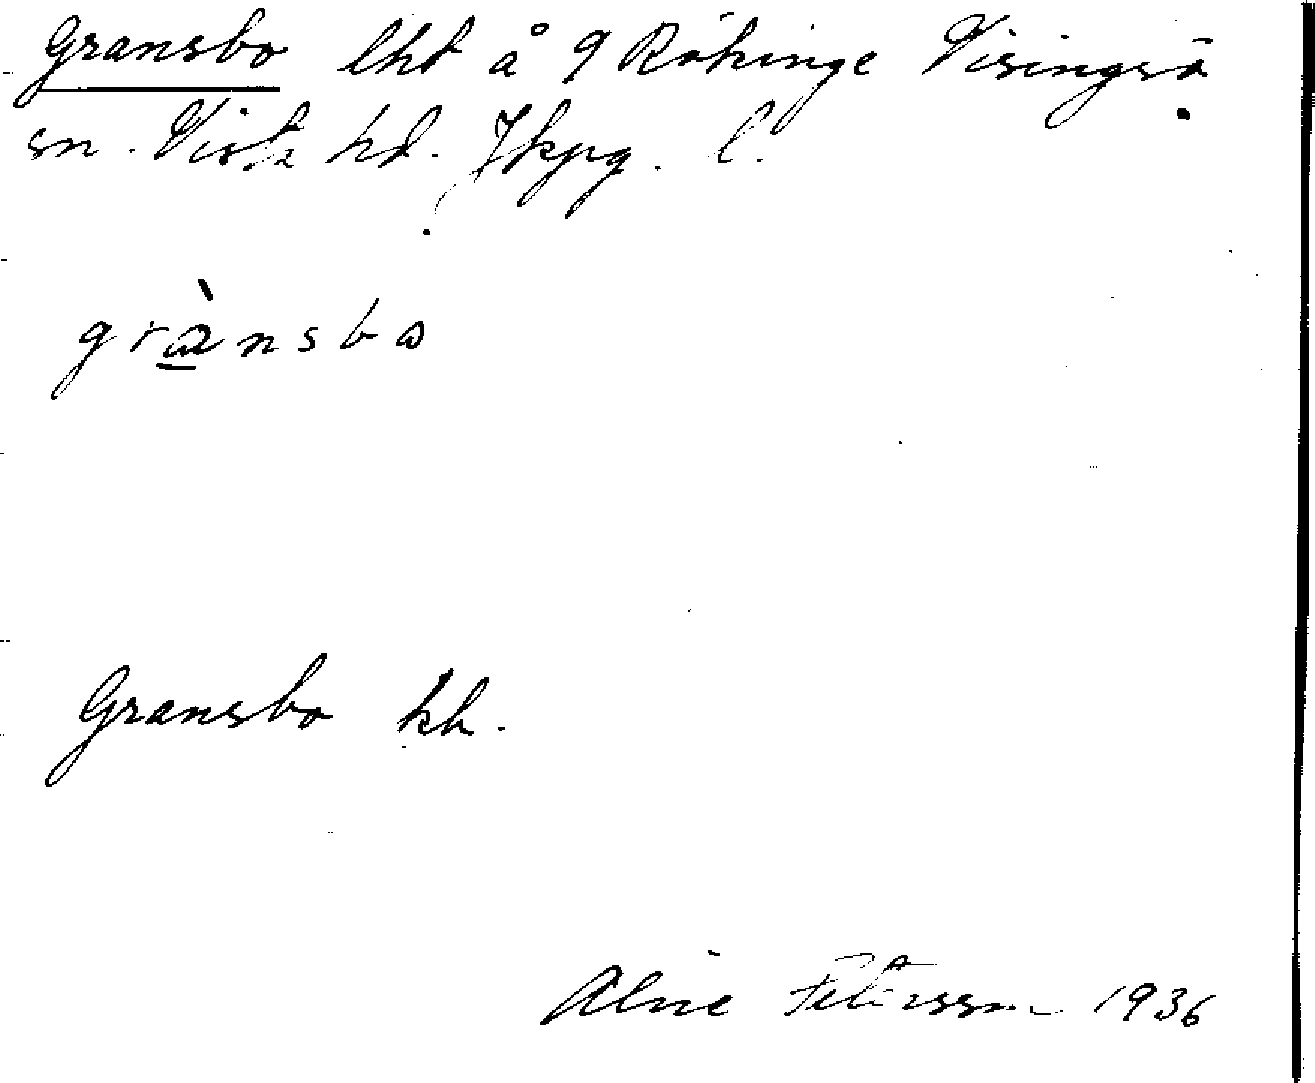 Gransbo lht å 9 Rökinge Visingsö
sn. Vista hd. Jkpg. l.
grànsbo
Gransbo kb.
Petersson 1936